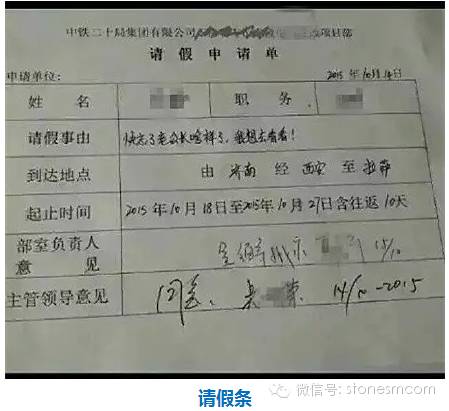 中铁二十局集团有限公司 项目部
请假申请单
申请单位： 2015年10月14日
姓名 职务
请假事由 快忘了老公长啥样了，我想去看看！
到达地点 由 济南 经 西安 至 拉萨
起止时间 2015年10月18日至2015年10月27日含往返10天
部室负责人意见 15/10
主管领导意见 同意 14/10-2015
请假条
微信号: stonesmcom